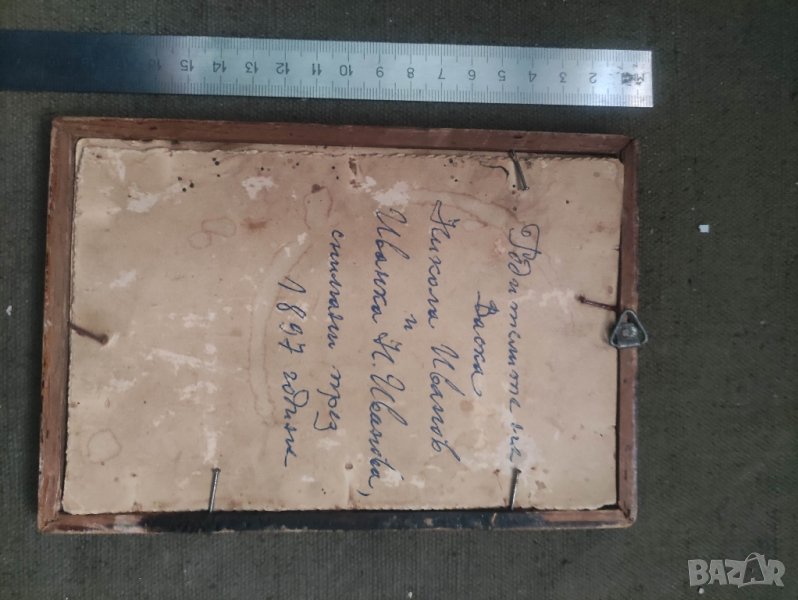 Родителите на
Васка
Никола Иванов
и
Иванка Н. Иванова,
снимани през
1897 година
1 2 3 4 5 6 7 8 9 10 11 12 13 14 15 16
BAZAR